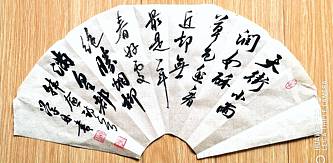 天街小雨
润如酥
草色遥看
近却无
最是一年
春好处
绝胜烟柳
满皇都
韩愈